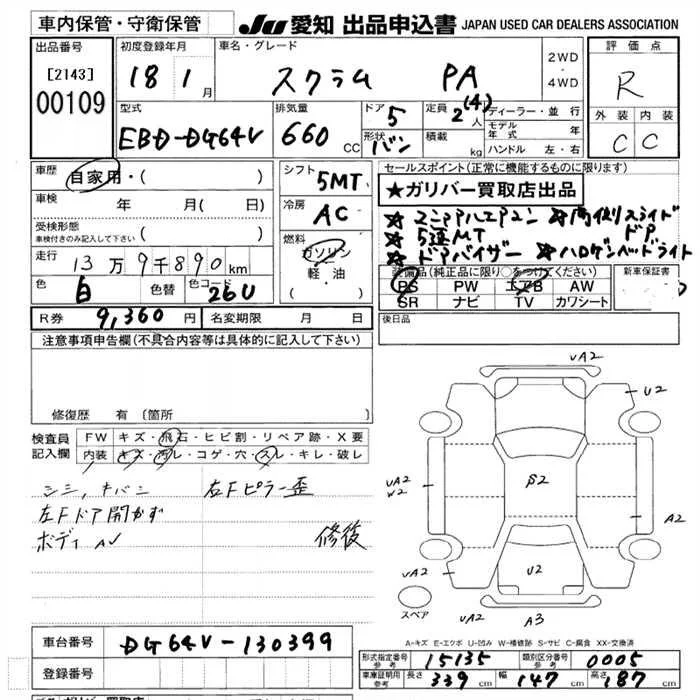 車内保管・守衛保管
JU 愛知 出品申込書 JAPAN USED CAR DEALERS ASSOCIATION
出品番号 [2143] 00109
初度登録年月 18 1月
車名・グレード スクラム PA
2WD・4WD
評価点 R
外装 内装
C C
型式 EBD-DG64V
排気量 660 CC
ドア 5
形状 バン
定員 2(4)人
積載 kg
ディーラー・並行
モデル年式 年
ハンドル 左・右
車歴 自家用・( )
車検 年 月( 日)
受検形態
車検付きのみ記入して下さい ( )
走行 13万9千890km
色 白 色替 色コード 26U
R券 9,360円 名変期限 月 日
シフト 5MT
冷房 AC
燃料 ガソリン
軽油
( )
セールスポイント(正常に機能するものに限ります)
★ガリバー買取店出品
★マニュアルエアコン ★両側スライドドア
★5速MT
★ドアバイザー ★ハロゲンヘッドライト
装備品(純正品に限り○をつけてください)
PS PW エアB AW
SR ナビ TV カワシート
新車保証書
後日品
注意事項申告欄(不具合内容等は具体的に記入して下さい)
修復歴 有〔箇所
検査員記入欄
FW キズ・飛石・ヒビ割・リペア跡・X要
内装 キズ・汚レ・コゲ・穴・スレ・キレ・破レ
シミ,キバミ 右Fピラー歪
左Fドア開かず
ボディAU 修後
UA2
U2
UA2
W2
β2
A2
UA2
U2
UA2
A3
スペア
A-キズ E-エクボ U-凹み W-補修跡 S-サビ C-腐食 XX-交換済
車台番号 DG64V-130399
登録番号
形式指定番号 参考 15135
類別区分番号 参考 0005
車庫証明用 参考 長さ 339cm 幅 147cm 高さ 187cm